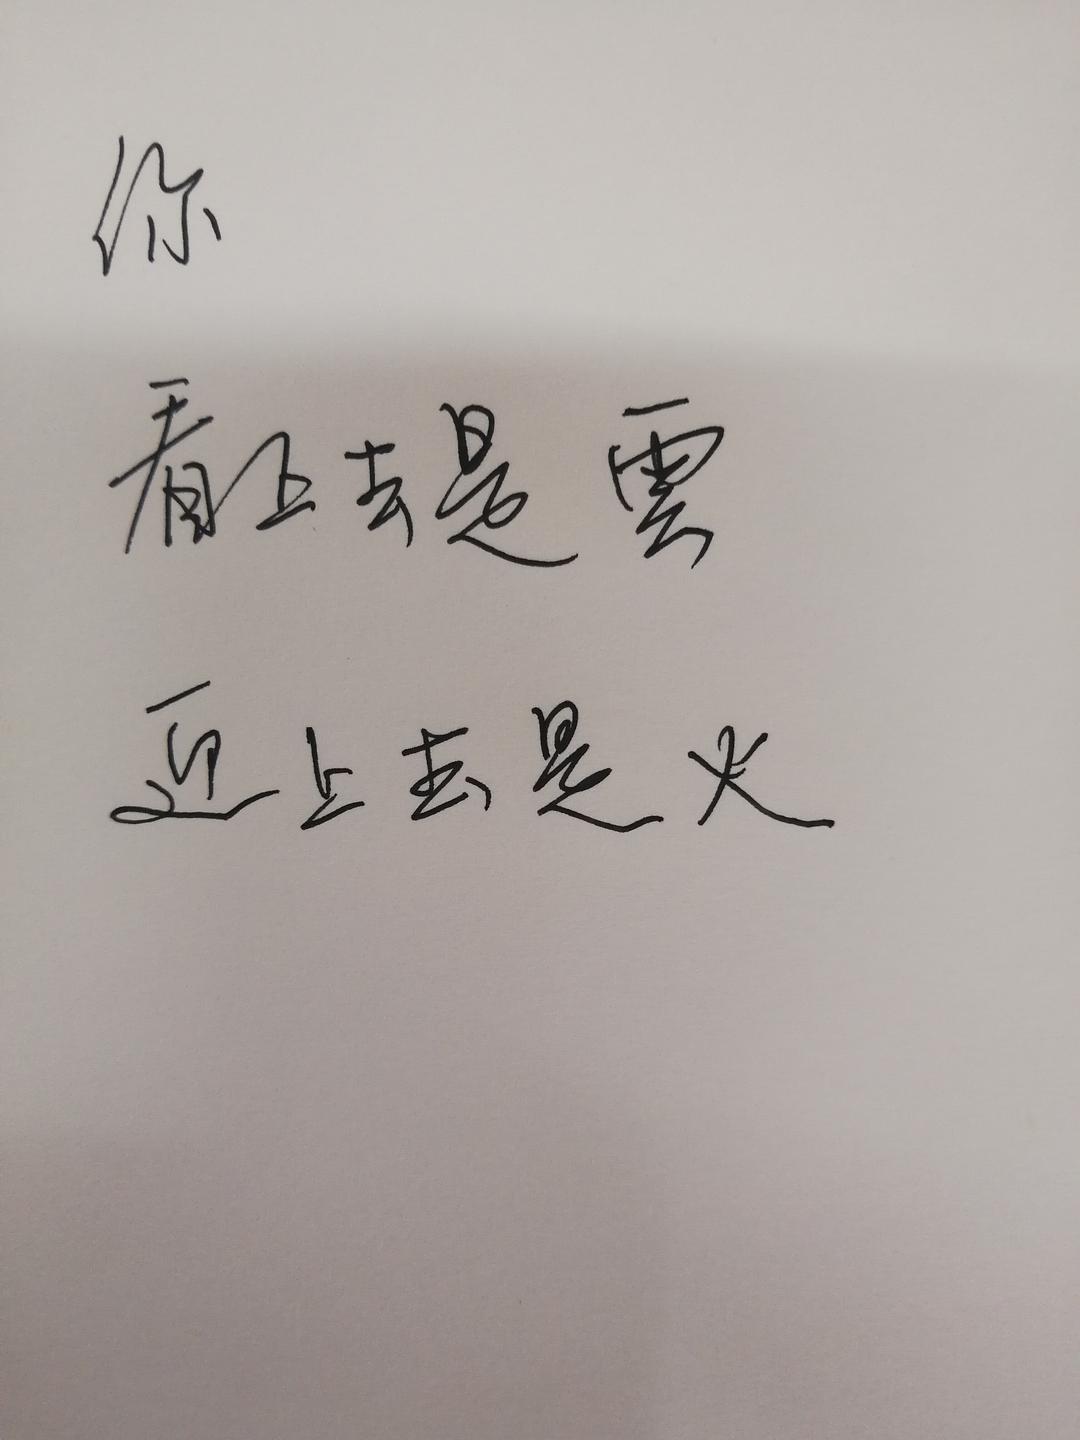 你
看上去是雲
近上去是火